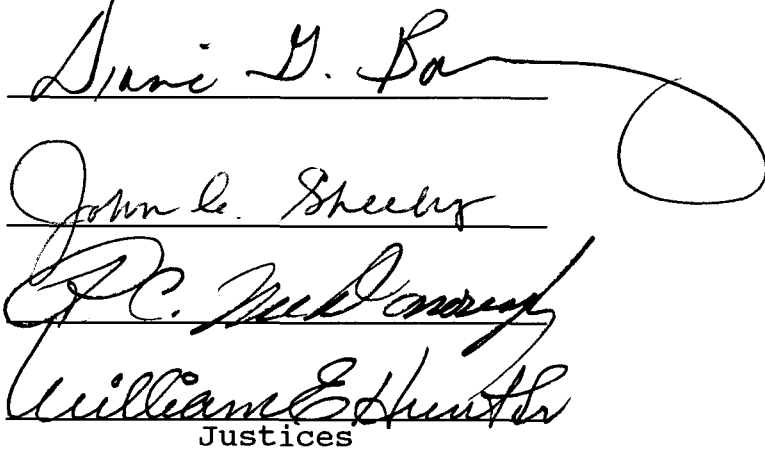 Diane G. Barz
John C. Sheehy
R. C. McDonough
William E Hunt Sr
Justices